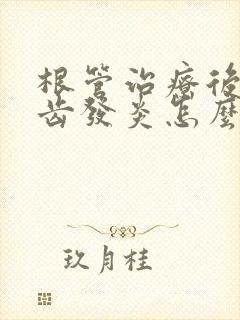 根管治療後
齿發炎怎麼
玖月桂